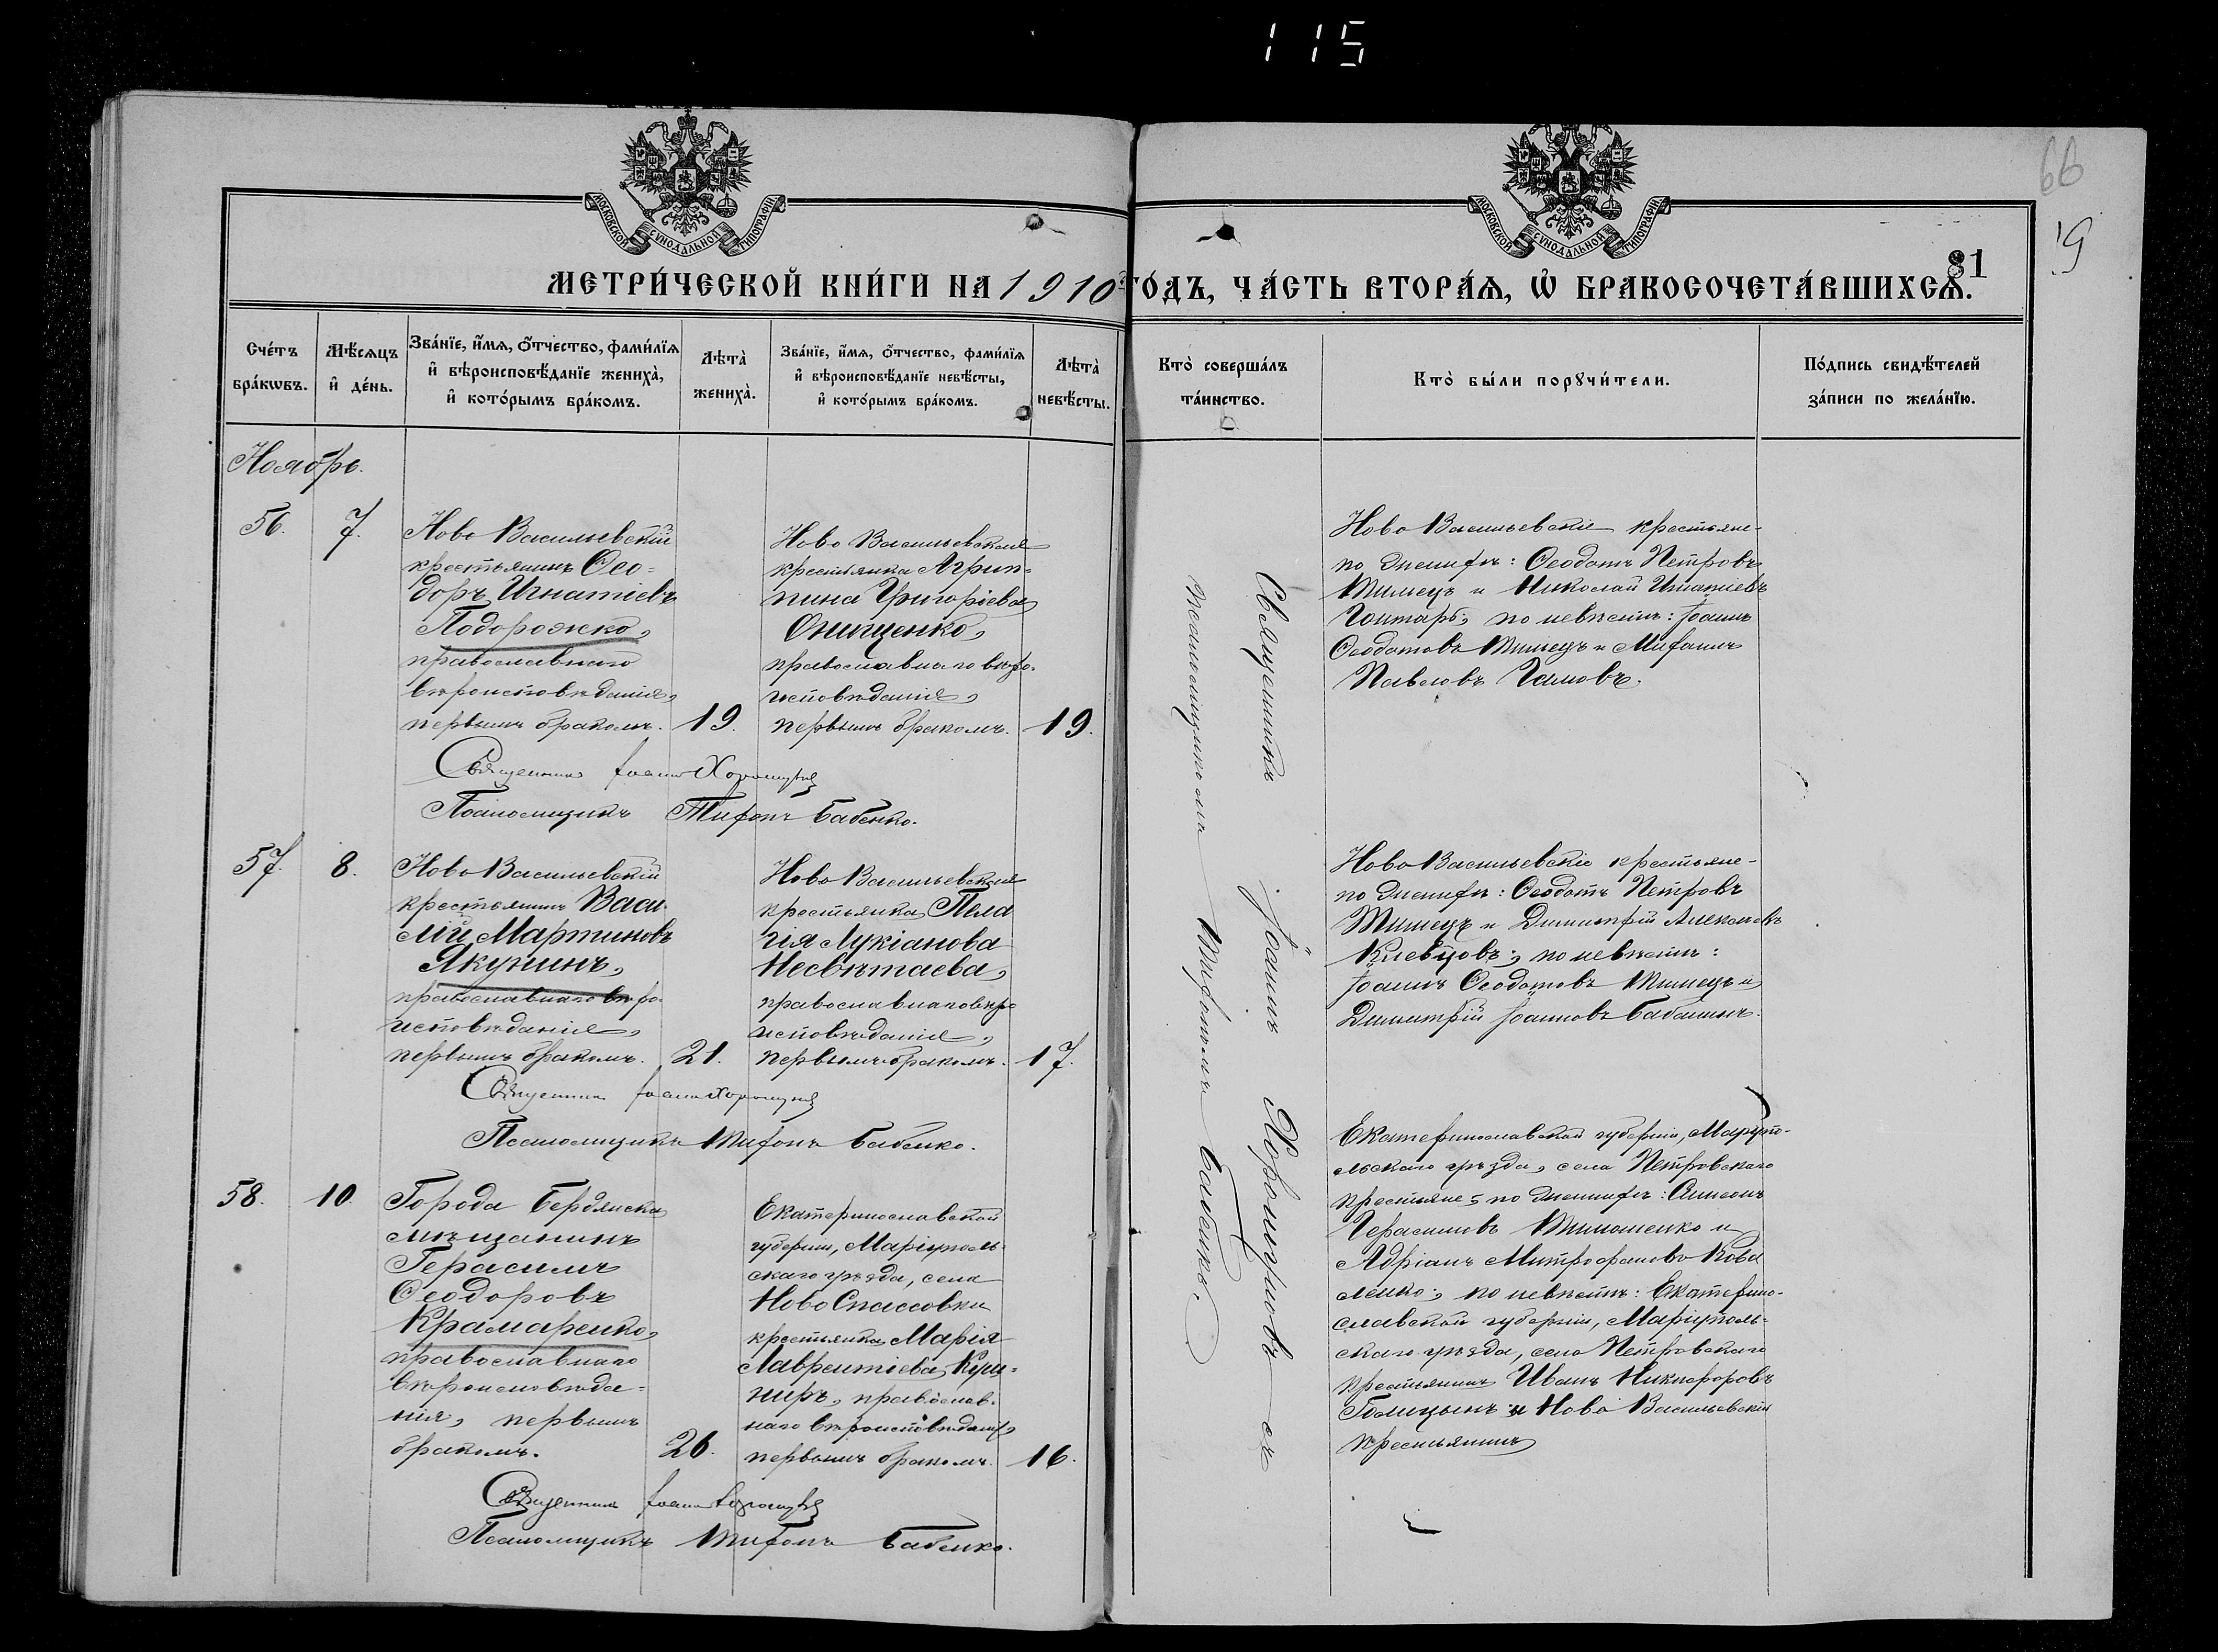 115
66
19
81
МОСКОВСКОЙ СѴНОДАЛЬНОЙ ТИПОГРАФІИ
МОСКОВСКОЙ СѴНОДАЛЬНОЙ ТИПОГРАФІИ
МЕТРИ́ЧЕСКОЙ КНИ́ГИ НА 1910й ГО́ДЪ, ЧА́СТЬ ВТОРА́Ѧ, Ѡ҆ БРАКОСОЧЕТА́ВШИХСѦ.
Сче́тъ бра́кѡвъ.
Мѣ́сѧцъ и҆ де́нь.
Зва́нїе, и҆́мѧ, ѻ҆́тчество, фами́лїѧ и҆ вѣроисповѣ́данїе жениха̀, и҆ кото́рымъ бра́комъ.
Лѣта̀ жениха̀.
Зва́нїе, и҆́мѧ, ѻ҆́тчество, фами́лїѧ и҆ вѣроисповѣ́данїе невѣ́сты, и҆ кото́рымъ бра́комъ.
Лѣта̀ невѣ́сты.
Кто̀ соверша́лъ та́инство.
Кто̀ бы́ли порꙋчи́тели.
По́дпись свидѣ́телей за́писи по жела́нїю.
Ноябрь.
56.
7.
Ново Васильевскій
крестьянинъ Ѳео-
доръ Игнатіевъ
Подорожко,
православнаго
вѣроисповѣданія,
первымъ бракомъ.
19.
Ново Васильевская
крестьянка Агрип-
пина Григоріева
Онищенко,
православнаго вѣро-
исповѣданія,
первымъ бракомъ.
19.
Священникъ Іоаннъ Хорошуновъ
Псаломщикъ Тифонъ Бабенко.
Ново Васильевскіе крестьяне-
по женихѣ: Ѳеодотъ Петровъ
Тимецъ и Николай Игнатіевъ
Гонтарь, по невѣстѣ: Іоаннъ
Ѳеодотовъ Тимецъ и
Павловъ
57.
8.
Ново Васильевскій
крестьянинъ Васи-
лій Мартиновъ
Якунинъ,
православнаго вѣро-
исповѣданія,
первымъ бракомъ.
21.
Ново Васильевская
крестьянка Пела
гія Лукіанова
Несвѣтаева,
православнаго вѣро
исповѣданія,
первымъ бракомъ.
17.
Священникъ Іоаннъ Хорошуновъ
Псаломщикъ Тифонъ Бабенко.
Ново Васильевскіе крестьяне-
по женихѣ: Ѳеодотъ Петровъ
Тимецъ и Димитрій Алексѣевъ
Клевцовъ, по невѣстѣ:
Іоаннъ Ѳеодотовъ Тимецъ и
Димитрій Іоанновъ Бабанинъ.
58.
10.
Города Бердянска
мѣщанинъ
Герасимъ
Ѳеодоровъ
Крамаренко,
православнаго
вѣроисповѣда-
нія, первымъ
бракомъ.
26.
Екатеринославской
губерніи, Маріуполь-
скаго уѣзда, села
Ново Спассовки
крестьянка Марія
Лаврентіева Куш-
ниръ, православ-
наго вѣроисповѣданія,
первымъ бракомъ.
16.
Священникъ Іоаннъ Хорошуновъ
Псаломщикъ Тифонъ Бабенко.
Екатеринославской губерніи, Маріупо-
льскаго уѣзда, села Петровскаго
крестьяне, по женихѣ: Симеонъ
Герасимовъ Тимошенко и
Адріанъ Митрофановъ Кова
ленко, по невѣстѣ: Екатерино-
славской губерніи, Маріуполь-
скаго уѣзда, села Петровскаго
крестьянинъ Иванъ Никифоровъ
Голицынъ и Ново Васильевскій
крестьянинъ
Священникъ Іоаннъ Хорошуновъ съ
псаломщикомъ Тифономъ Бабенко.